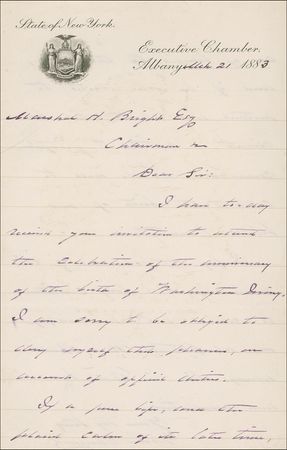 State of New York.
Executive Chamber.
Albany Mch 21 1883
Marshal H. Bright Esq
Chairman &c
Dear Sir:
I have to-day
received your invitation to attend
the Celebration of the anniversary
of the birth of Washington Irving.
I am sorry to be obliged to
deny myself this pleasure, on
account of official duties.
If a pure life, and the
placid calm of its later time,